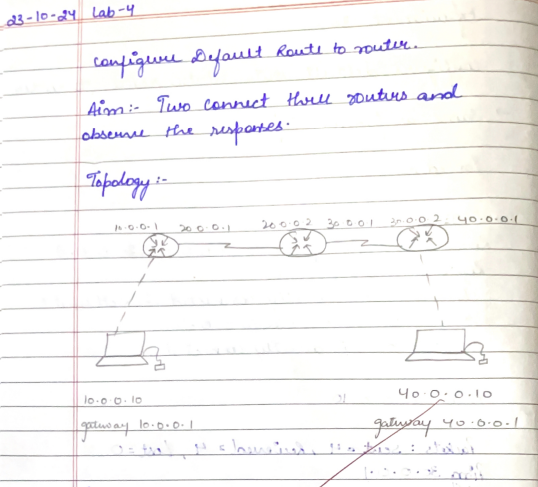 23-10-24 Lab-4
Configure Default Route to router.
Aim:- Two connect three routers and
observe the responses.
Topology:-
10.0.0.1 20.0.0.1 20.0.0.2 30.0.0.1 30.0.0.2 40.0.0.1
10.0.0.10 40.0.0.10
gateway 10.0.0.1 gateway 40.0.0.1